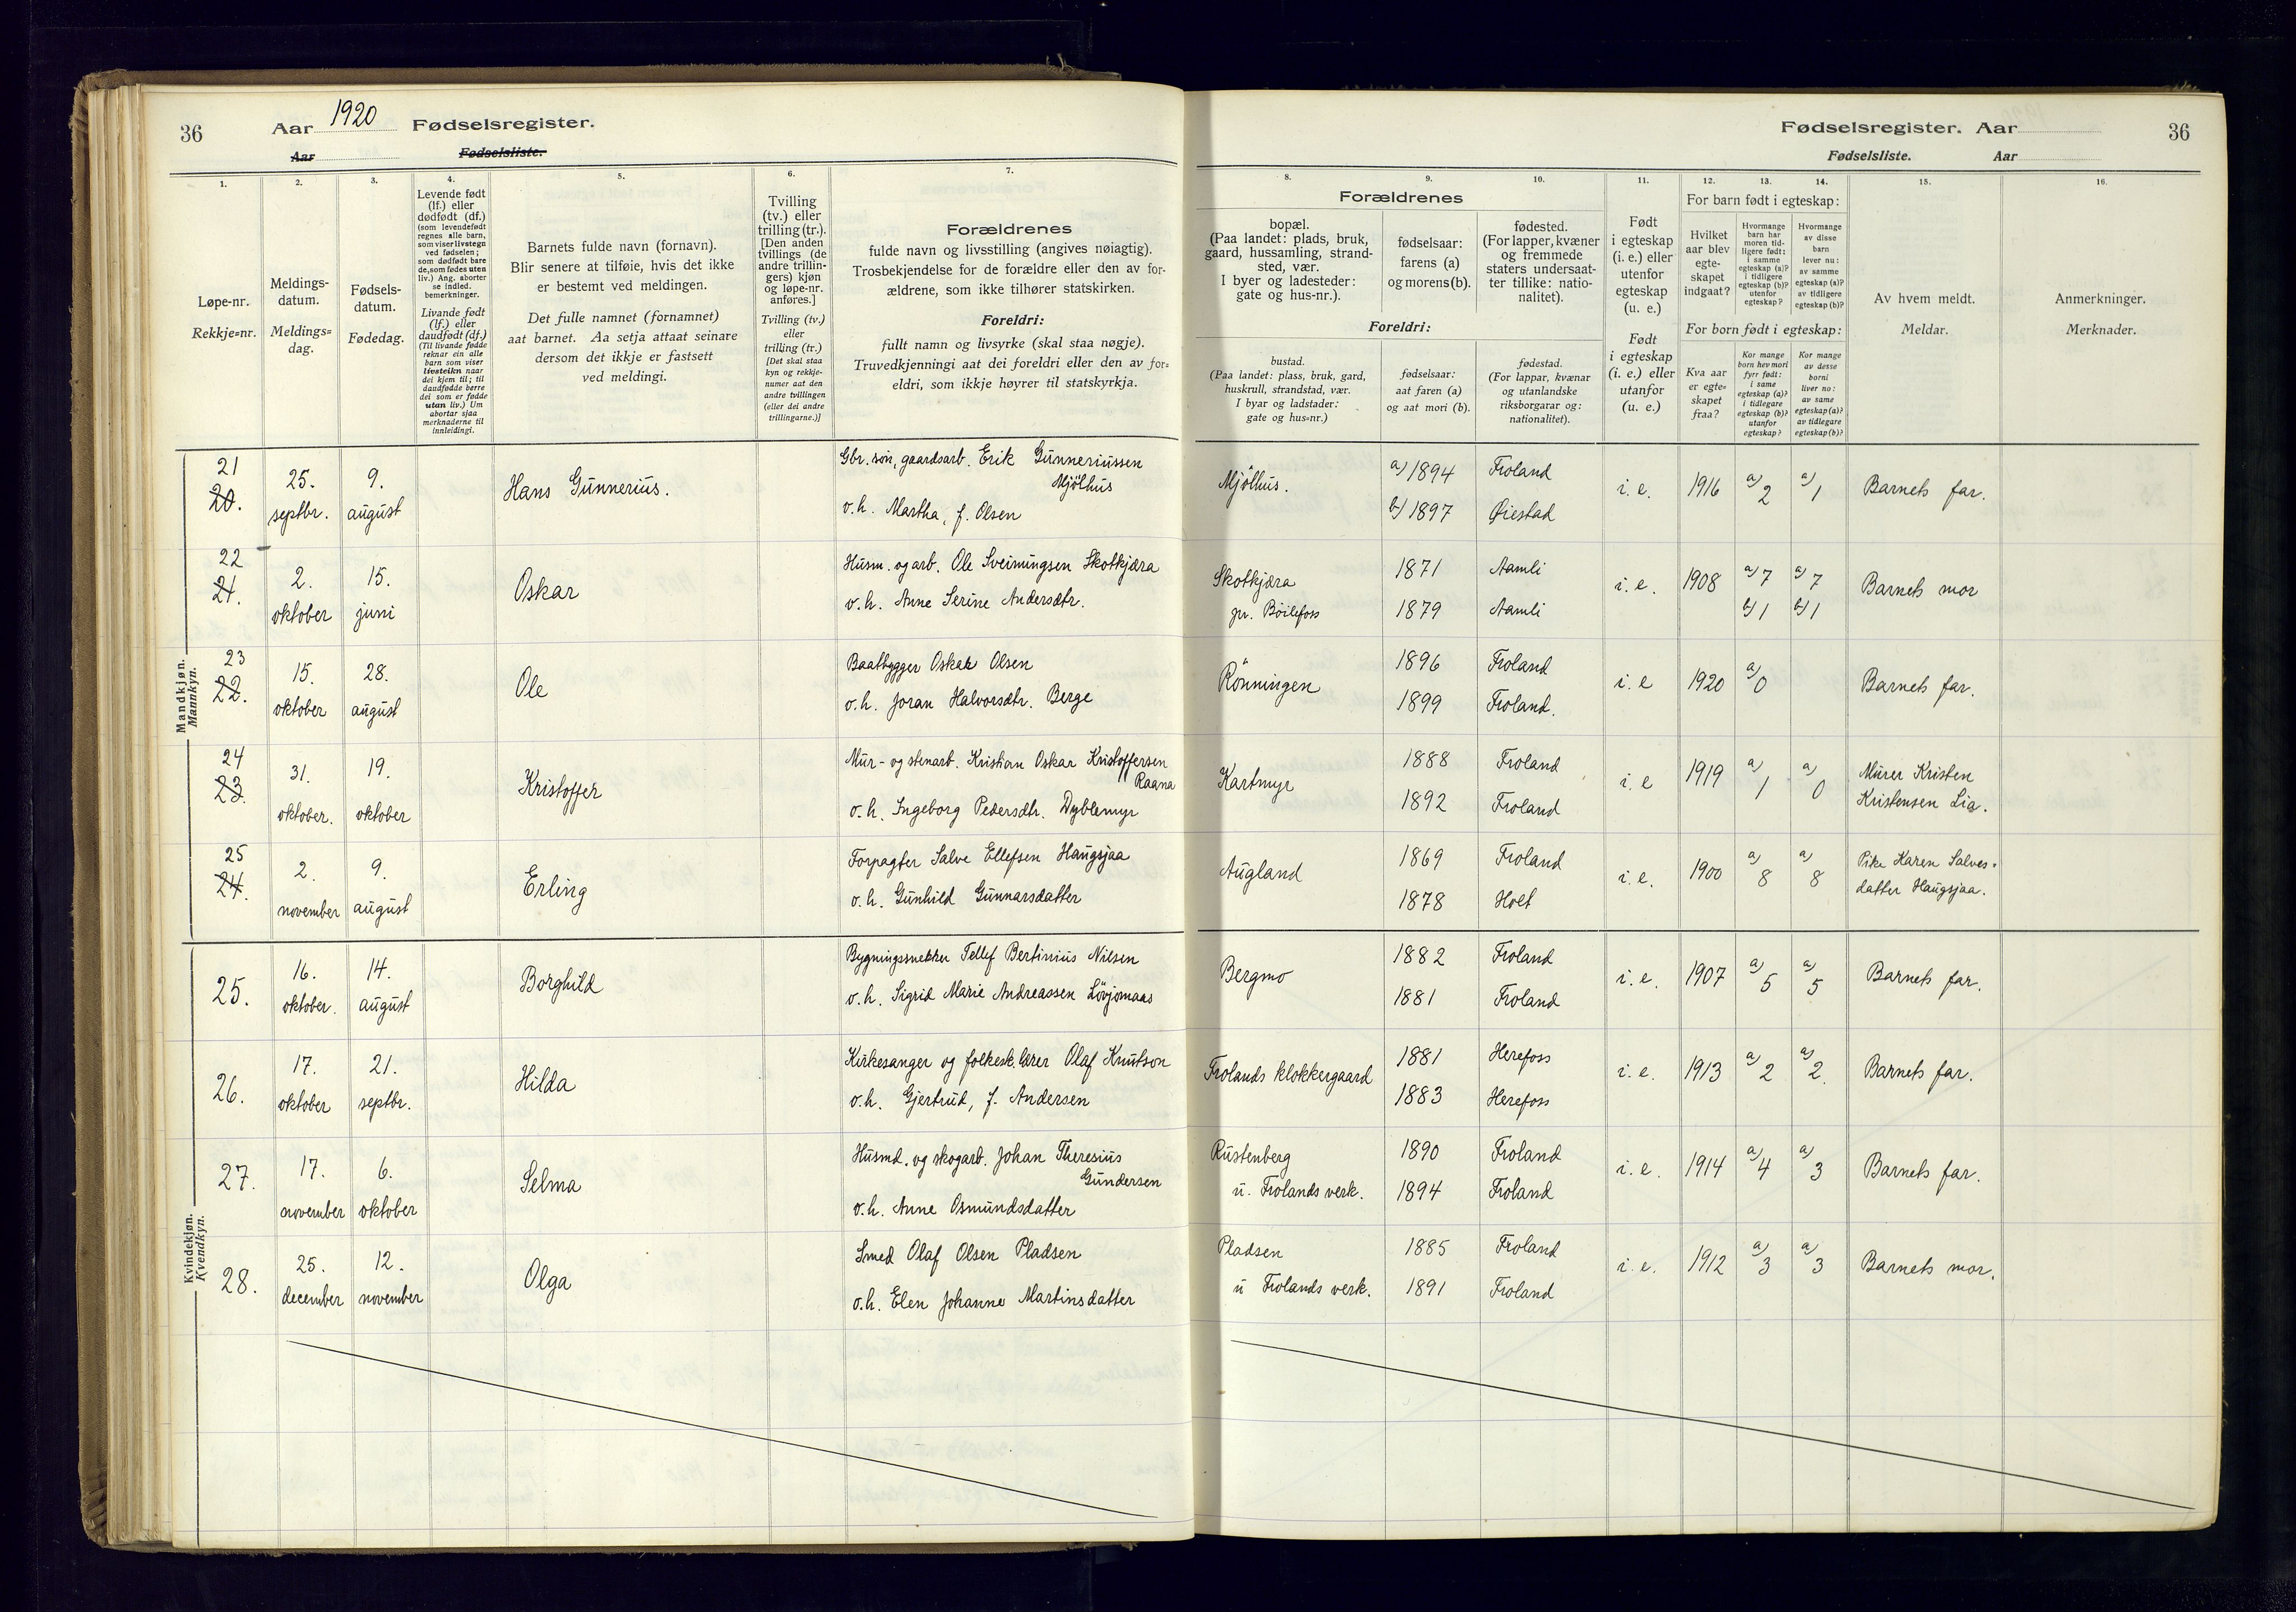 36
Aar 1920 Fødselsregister.
Aar Fødselsliste.
1.
2.
3.
4.
5.
6.
7.
Løpe-nr.
Rekkje=nr.
Meldings-
datum.
Meldings=
dag.
Fødsels-
datum.
Fødedag.
Levende født
(lf.) eller
dødfødt (df.)
(som levendefødt
regnes alle barn,
som viser livstegn
ved fødselen;
som dødfødt bare
de, som fødes uten
liv.) Ang. aborter
se indled.
bemerkninger.
Livande født
(lf.) eller
daudfødt (df.)
(Til livande fødde
reknar ein alle
barn som viser
livsteikn naar
dei kjem til; til
daudfødde berre
dei som er fødde
utan liv.) Um
abortar sjaa
merknaderne til
innleidingi.
Barnets fulde navn (fornavn).
Blir senere at tilføie, hvis det ikke
er bestemt ved meldingen.
Det fulle namnet (fornamnet)
aat barnet. Aa setja attaat seinare
dersom det ikkje er fastsett
ved meldingi.
Tvilling
(tv.) eller
trilling (tr.).
[Den anden
tvillings (de
andre trillin-
gers) kjøn
og løpe-nr.
anføres.]
Tvilling (tv.)
eller
trilling (tr.)
[Det skal staa
kyn og rekkje-
numer aat den
andre tvillingen
(eller dei andre
trillingarne.)]
Forældrenes
fulde navn og livsstilling (angives nøiagtig).
Trosbekjendelse for de forældre eller den av for-
ældrene, som ikke tilhører statskirken.
Foreldri:
fullt namn og livsyrke (skal staa nøgje).
Truvedkjenningi aat dei foreldri eller den av for=
eldri, som ikkje høyrer til statskyrkja.
Fødselsregister. Aar
36
Fødselsliste. Aar
8.
9.
10.
11.
12.
13.
14.
15.
16.
Forældrenes
bopæl.
(Paa landet: plads, bruk,
gaard, hussamling, strand-
sted, vær.
I byer og ladesteder:
gate og hus-nr.).
fødselsaar:
farens (a)
og morens (b).
fødested.
(For lapper, kvæner
og fremmede
staters undersaat-
ter tillike: natio-
nalitet).
Foreldri:
bustad.
(Paa landet: plass, bruk, gard,
huskrull, strandstad, vær.
I byar og ladstader:
gate og hus-nr.)
fødselsaar:
aat faren (a)
og aat mori (b).
fødestad.
(For lappar, kvænar
og utanlandske
riksborgarar og:
nationalitet).
Født
i egteskap
(i. e.) eller
utenfor
egteskap
(u. e.)
Født
i egteskap
(i. e.) eller
utanfor
egteskap
(u. e.)
For barn født i egteskap:
Hvilket
aar blev
egte-
skapet
indgaat?
Hvormange
barn har
moren tid-
ligere født:
i samme
egteskap (a)?
i tidligere
egteskap (b)?
utenfor
egteskap?
Hvormange
av disse
barn
lever nu:
av samme
egteskap (a)?
av tidligere
egteskap (b)?
For born født i egteskap:
Kva aar
er egte=
skapet
fraa?
Kor mange
born hev mori
fyrr født:
i same
egteskap (a)?
i tidlegare
egteskap (b)?
utanfor
egteskap?
Kor mange
av desse
borni
liver no:
av same
egteskap (a)?
av tidlegare
egteskap (b)?
Av hvem meldt.
Meldar.
Anmerkninger.
Merknader.
Mandkjøn.
Mannkyn.
21
20. 25. septbr. 9. august Hans Gunnerius.
Gbr. søn, gaardsarb. Erik Gunneriussen
Mjölhus
o. h. Martha, f. Olsen
Mjölhus. a) 1894 Froland i. e. 1916 a) 2 a) 1 Barnets far.
b) 1897 Øiestad
22
21. 2. oktober 15. juni Oskar
Husm. og arb. Ole Sveinungsen Skotkjæra
o. h. Anne Serine Andersdtr.
Skotkjæra 1871 Aamli i. e. 1908 a) 7 a) 7 Barnets mor
pr. Böilefoss 1879 Aamli b) 1 b) 1
23
22. 15. oktober 28. august Ole
Baatbygger Oskar Olsen
o. h. Joran Halvorsdtr. Berge
Rönningen 1896 Froland i. e 1920 a) 0 Barnets far.
1899 Froland.
24
23. 31. oktober. 19. oktober Kristoffer
Mur- og stenarb. Kristian Oskar Kristoffersen
Raana
o. h. Ingeborg Pedersdtr. Dyblemyr
Kartmyr 1888 Froland i. e 1919 a) 1 a) 0 Murer Kristen
1892 Froland Kristensen Lia.
25
24. 2. november 9. august Erling
Forpagter Salve Ellefsen Haugsjaa
o. h. Gunhild Gunnarsdatter
Augland 1869 Froland i. e. 1900 a) 8 a) 8 Pike Karen Salves-
1878 Holt datter Haugsjaa.
Kvindekjøn.
Kvendkyn.
25. 16. oktober. 14. august Borghild
Bygningssnekker Tellef Bertinius Nilsen
o. h. Sigrid Marie Andreassen Lövjomaas
Bergmo 1882 Froland i. e. 1907 a) 5 a) 5 Barnets far.
1881 Froland
26. 17. oktober 21. septbr. Hilda
Kirkesanger og folkesk. lærer Olaf Knutson
o. h. Gjertrud, f. Andersen
Frolands klokkergaard 1881 Herefoss i. e. 1913 a) 2 a) 2. Barnets far.
1883 Herefoss
27. 17. november 6. oktober Selma
Husmd. og skogarb. Johan Theresius
Gundersen
o. h. Anne Osmundsdatter
Rustenberg 1890 Froland i. e. 1914 a) 4 a) 3 Barnets far.
u. Frolands verk. 1894 Froland
28. 25. december 12. november Olga
Smed Olaf Olsen Pladsen
o. h. Elen Johanne Martinsdatter
Pladsen 1885 Froland i. e. 1912 a) 3 a) 3 Barnets mor.
u Frolands verk. 1891 Froland